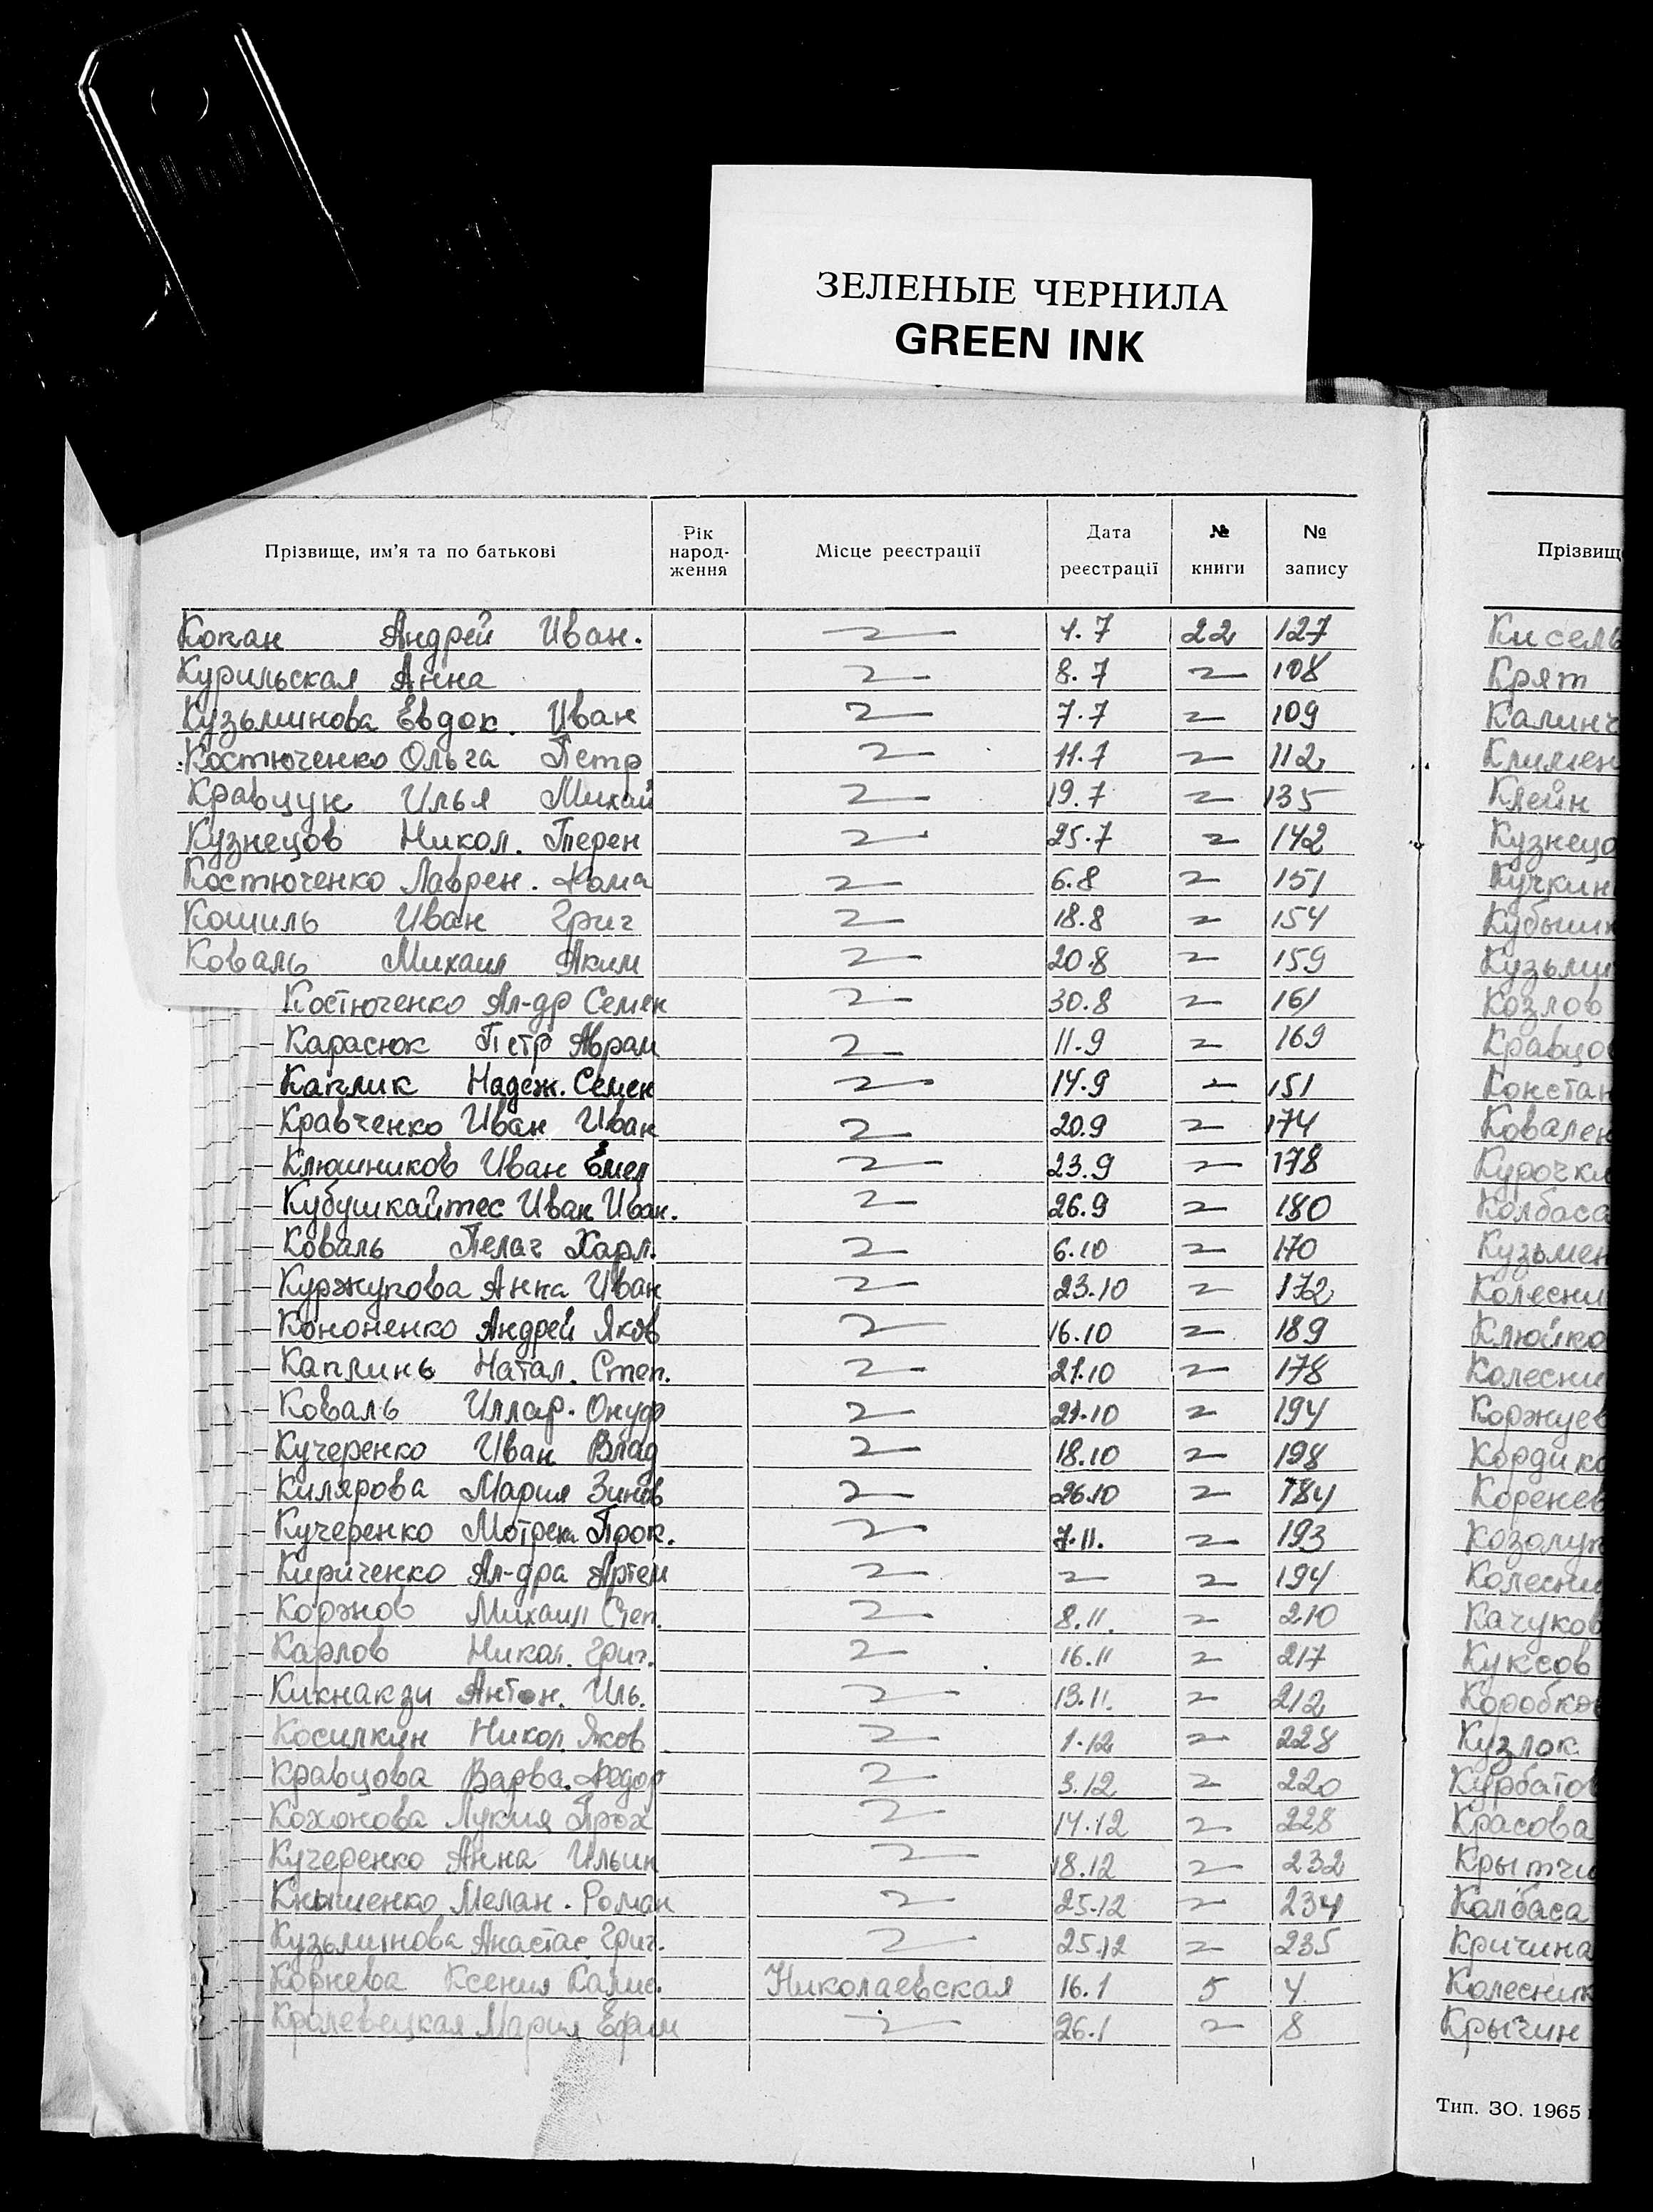 ЗЕЛЕНЫЕ ЧЕРНИЛА
GREEN INK
Прізвище, им'я та по батькові Рік народ- ження Місце реєстрації Дата реєстрації № книги № запису
Копан Андрей Иван. 1.7 22 127
Курильская Анна 8.7 108
Кузьминова Евдок. Иван 7.7 109
Костюченко Ольга Петр 11.7 112
Кравцун Илья Михай 19.7 135
Кузнецов Никол. Терен 25.7 142
Костюченко Лаврен. Фома 6.8 151
Кошиль Иван Григ 18.8 154
Коваль Михаил Аким 20.8 159
Костюченко Ал-др Семен 30.8 161
Карасюк Петр Аврам 11.9 169
Каплик Надеж. Семен 14.9 151
Кравченко Иван Иван 20.9 174
Клюшников Иван Емел 23.9 178
Кубушкайтес Иван Иван. 26.9 180
Коваль Пелаг Харл. 6.10 170
Куржупова Анна Иван 23.10 172
Кононенко Андрей Яков 16.10 189
Каплинь Натал. Степ. 21.10 178
Коваль Иллар. Онуф 21.10 194
Кучеренко Иван Влад 18.10 198
Килярова Мария Зинов 26.10 184
Кучеренко Мотрена Прок. 7.11. 193
Кириченко Ал-дра Артем 194
Коржов Михаил Степ. 8.11. 210
Карлов Никол. Григ. 16.11 217
Кикнакзи Антон. Иль. 13.11. 212
Косилкин Никол. Яков 1.12 228
Кравцова Варва. Федор 3.12 220
Кохонова Лукия Прох 14.12 228
Кучеренко Анна Ильин 18.12 232
Кнышенко Мелан. Роман 25.12 234
Кузьминова Анастас. Григ. 25.12 235
Корнева Ксения Калис. Николаевская 16.1 5 4
Кролевецкая Мария Ефим 26.1 8
Прізвищ
Кисель
Крят
Калинч
Климен
Клейн
Кузнецо
Кучкин
Кубыш
Кузьми
Козлов
Кравцов
Констан
Ковален
Курочки
Колбаса
Кузьмен
Колесни
Клюйко
Колесни
Коржуев
Кордико
Коренев
Козолуп
Колесни
Качуков
Куксов
Коробков
Кузлок
Курбатов
Красова
Крытчи
Колбаса
Кричина
Колесник
Крычин
Тип. ЗО. 1965